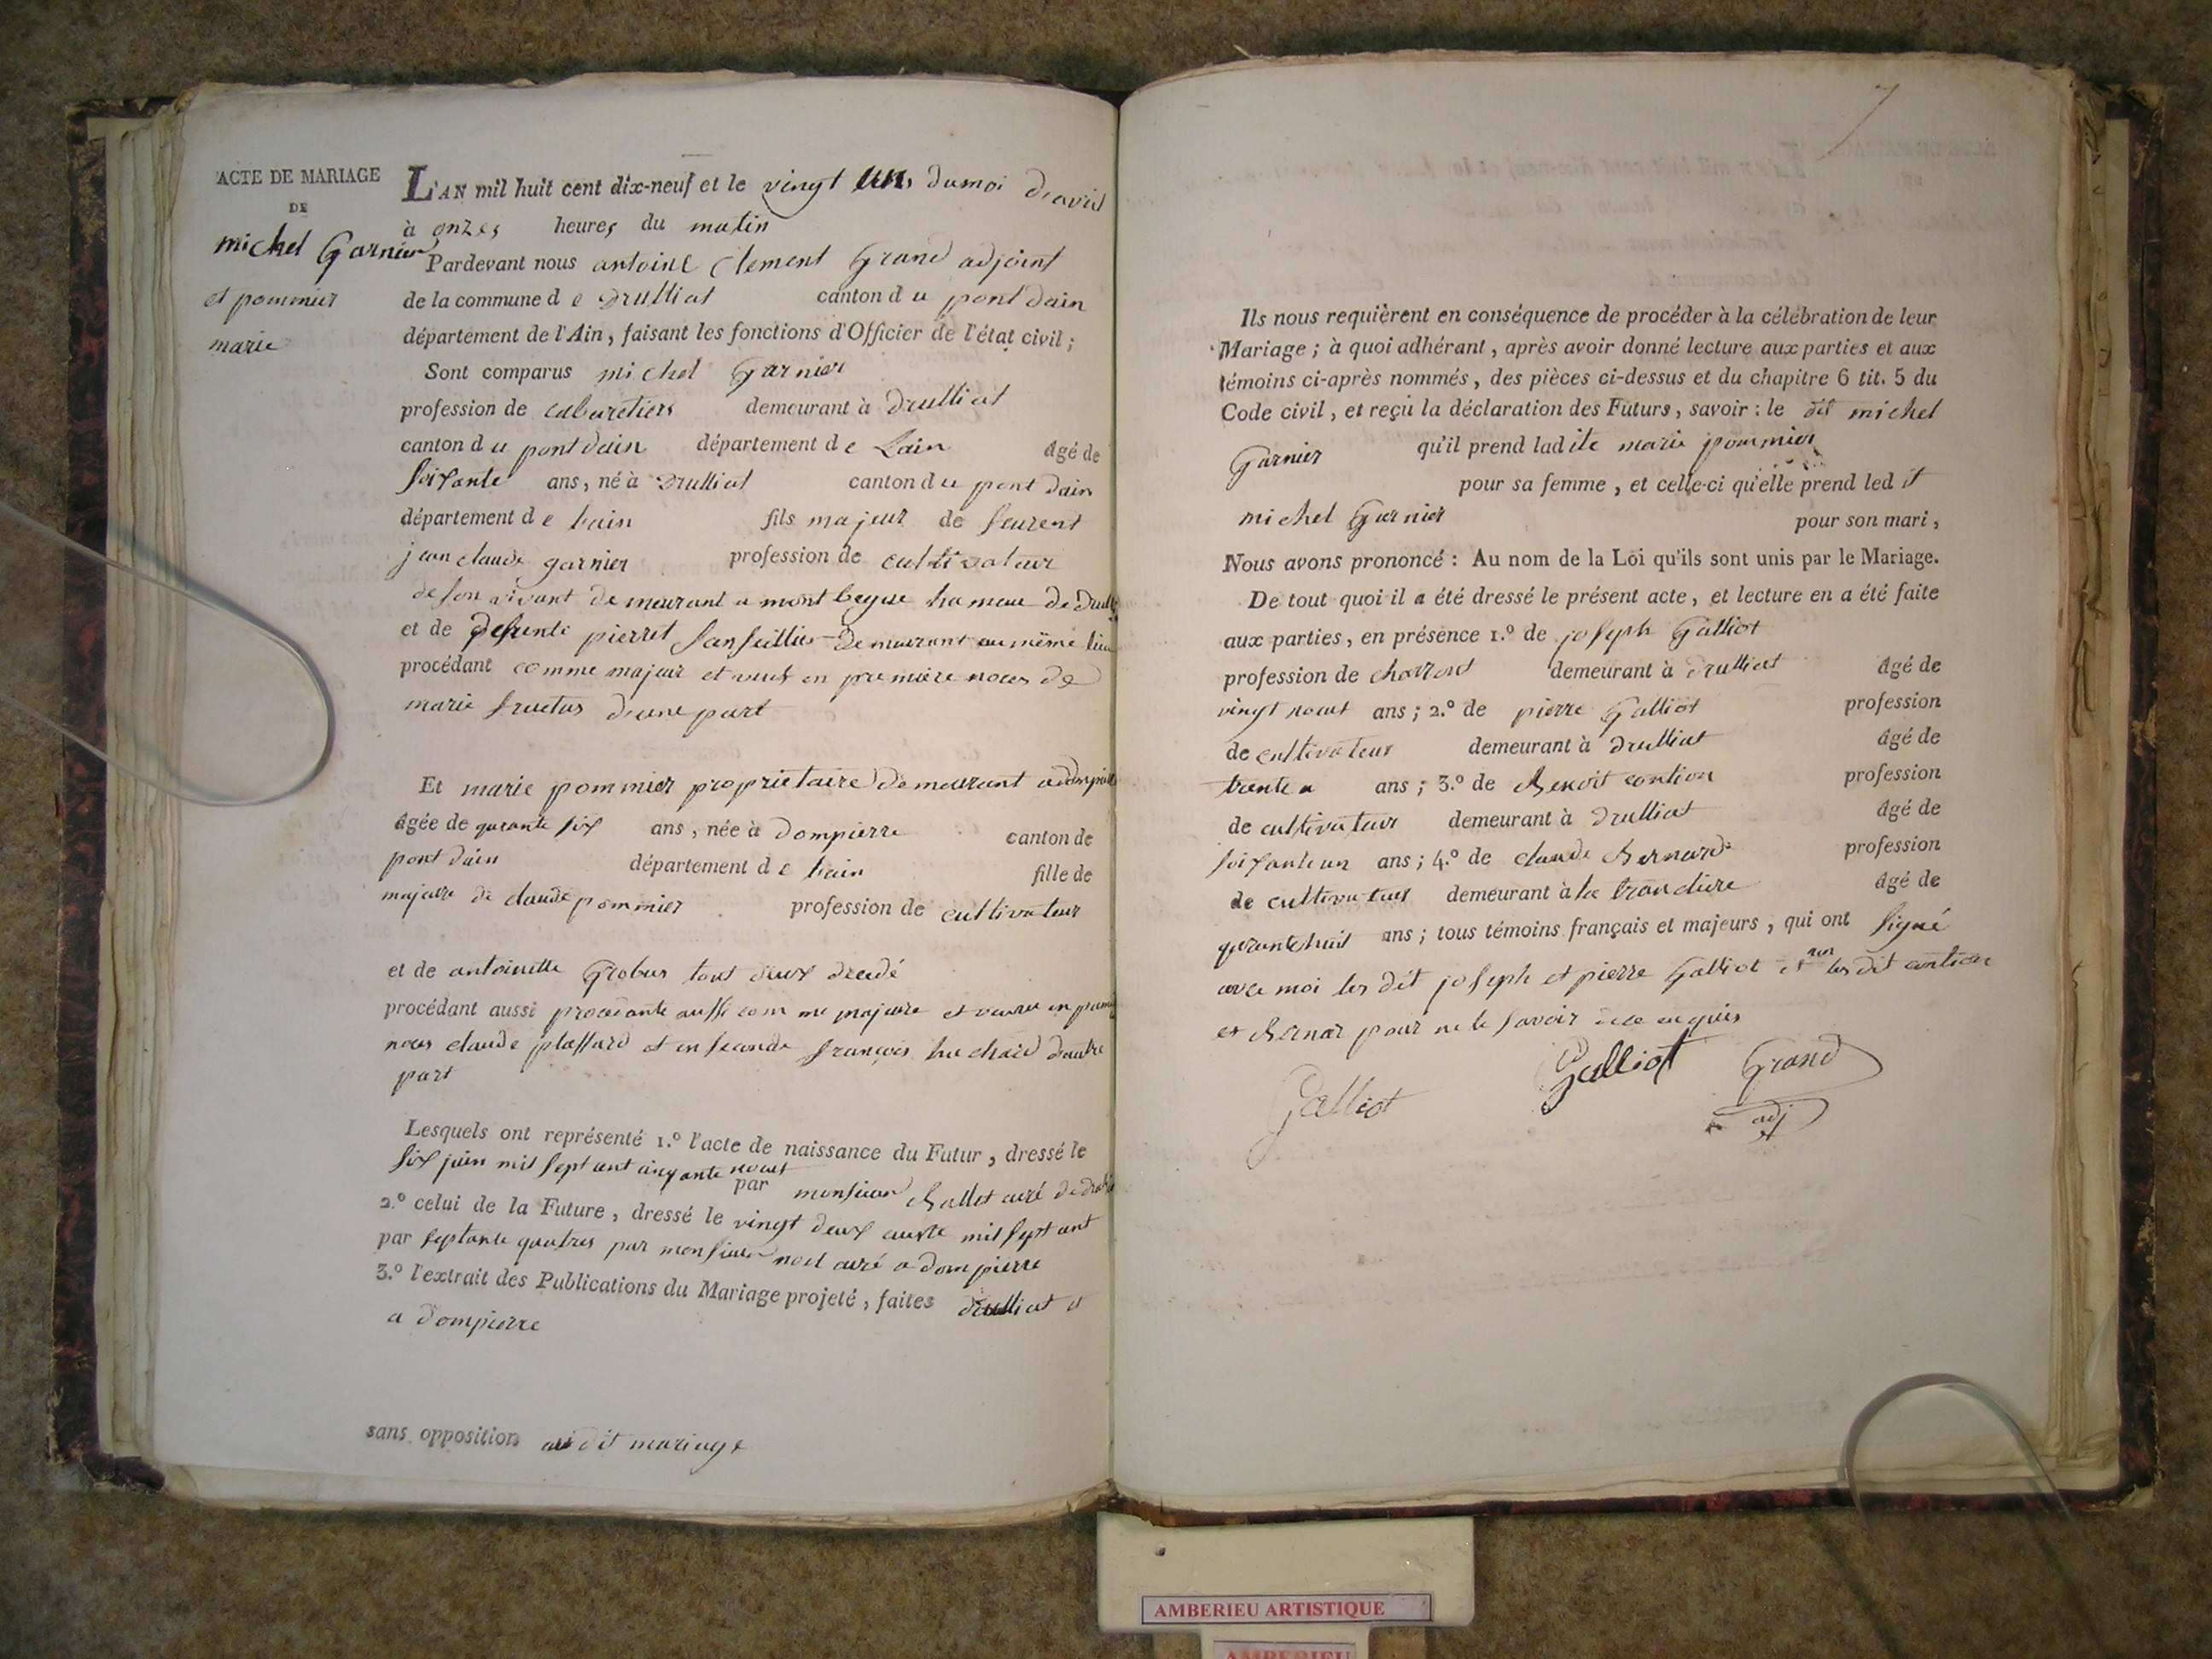 ACTE DE MARIAGE
DE
michel Garnier
et pommier
marie
L'AN mil huit cent dix-neuf et le vingt un dumoi davril
à onzes heures du matin
Pardevant nous antoine Clement Grand adjoint
de la commune d e Drulliat canton d u pont dain
département de l'Ain, faisant les fonctions d'Officier de l'état civil;
Sont comparus michel Garnier
profession de cabaretiers demeurant à Drulliat
canton d u pont dain département d e Lain âgé de
soixante ans, né à Drulliat canton d u pont dain
département d e lain fils majeur de laurent
jean claude garnier profession de cultivateur
de son vivant demeurant a mont begue hameau de
et de defunte pierret demeurant au même lieu
procédant comme majeur et veuf en premiere noces de
marie fructus d'une part
Et marie pommier proprietaire demeurant a
âgée de quarante six ans, née à dompierre canton de
pont dain département d e lain fille de
majeure de claude pommier profession de cultivateur
et de antoinette Grobas tout deux
procédant aussi procedante aussi com me majeure et veuve en
noces claude plassard et en seconde françois d'autre
part
Lesquels ont représenté 1.º l'acte de naissance du Futur, dressé le
six juin mil sept cent cinquante neuf
par monsieur Ballet curé
2.º celui de la Future, dressé le vingt deux auste mil sept cent
par septante quatres par monsieur noel curé a dompierre
3.º l'extrait des Publications du Mariage projeté, faites drulliat et
a dompierre
sans opposition au dit mariage
7
Ils nous requièrent en conséquence de procéder à la célébration de leur
Mariage; à quoi adhérant, après avoir donné lecture aux parties et aux
témoins ci-après nommés, des pièces ci-dessus et du chapitre 6 tit. 5 du
Code civil, et reçu la déclaration des Futurs, savoir: le dit michel
Garnier qu'il prend lad ite marie pommier
pour sa femme, et celle-ci qu'elle prend led it
michel Garnier pour son mari,
Nous avons prononcé: Au nom de la Loi qu'ils sont unis par le Mariage.
De tout quoi il a été dressé le présent acte, et lecture en a été faite
aux parties, en présence 1.º de joseph Galliot
profession de charron demeurant à drulliat âgé de
vingt neuf ans; 2.º de pierre Galliot profession
de cultivateur demeurant à Drulliat âgé de
trente ans; 3.º de Benoit contion profession
de cultivateur demeurant à Drulliat âgé de
soixante un ans; 4.º de claude Bernard profession
de cultivateur demeurant à la trancliere âgé de
quarante huit ans; tous témoins français et majeurs, qui ont signé
avec moi les dit joseph et pierre Galliot et non les dit contion
et Bernar pour ne le savoir de ce enquis
Galliot Galliot Grand
adj
AMBERIEU ARTISTIQUE
AMBERIEU